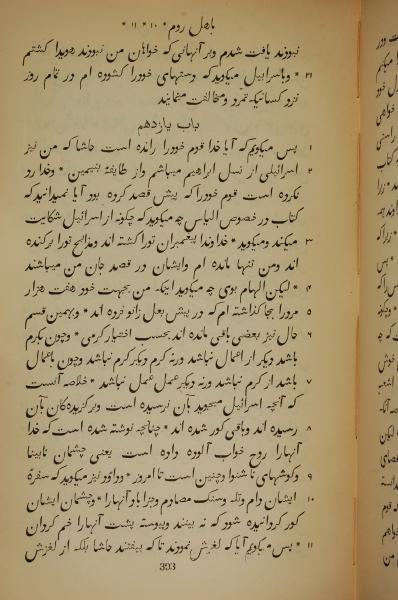 باهل روم * ۱۰ * ۱۱ *
نبودند یافت شدم وبر آنهائی که خواهان من نبودند هویدا کشتم
۲۱ * وباسراییل میکوید که دستهای خودرا کشوده ام در تمام روز
نزو کسانیکه تمرد ومخالفت مینمایند
باب یازدهم
۱ پس میکویم که آیا خدا قوم خودرا رانده است حاشا که من نیز
۲ اسرائیلی از نسل ابراهیم میباشم واز طایفهٔ بنیمین * وخدا رد
نکروه است قوم خودرا که پیش قصد کروه بود آیا نمیدانید که
کتاب در خصوص الیاس چه میکوید که چکونه از اسرائیل شکایت
۳ میکند ومیکوید * خداوندا پیغمبران تورا کشته اند ومذابح تورا برکنده
اند ومن تنها مانده ام وایشان در قصد جان من میباشند
۴ * لیکن الهام بوی چه میکوید اینکه من بجهت خود هفت هزار
۵ مرورا بجا کذاشته ام که در پیش بعل زانو نزده اند * وبهمین قسم
۶ حال نیز بعضی باقی مانده اند بحسب اختیار کرمی * وچون بکرم
باشد دیکر از اعمال نباشد ورنه کرم دیکر کرم نباشد وچون باعمال
۷ باشد از کرم نباشد ورنه دیکر عمل عمل نباشد * خلاصه آنست
که آنچه اسرائیل میجوید بآن نرسیده است وبرکزیده کان بآن
۸ رسیده اند وباقی کور شده اند * چنانچه نوشته شده است که خدا
آنهارا روح خواب آلوده داوه است یعنی چشمان نابینا
۹ وکوشهای ناشنوا وچنین است تا امروز * وداوٗد نیز میکوید که سفرهٔ
۱۰ ایشان دام وتله وسنک مصادم وجزا باد آنهارا * وچشمان ایشان
کور کروانیده شوو که نه بینند وپیوسته پشت آنهارا خم کروان
۱۱ * پس میکویم آیا که لغزش نمووند تا که بیفتند حاشا بلکه از لغزش
393